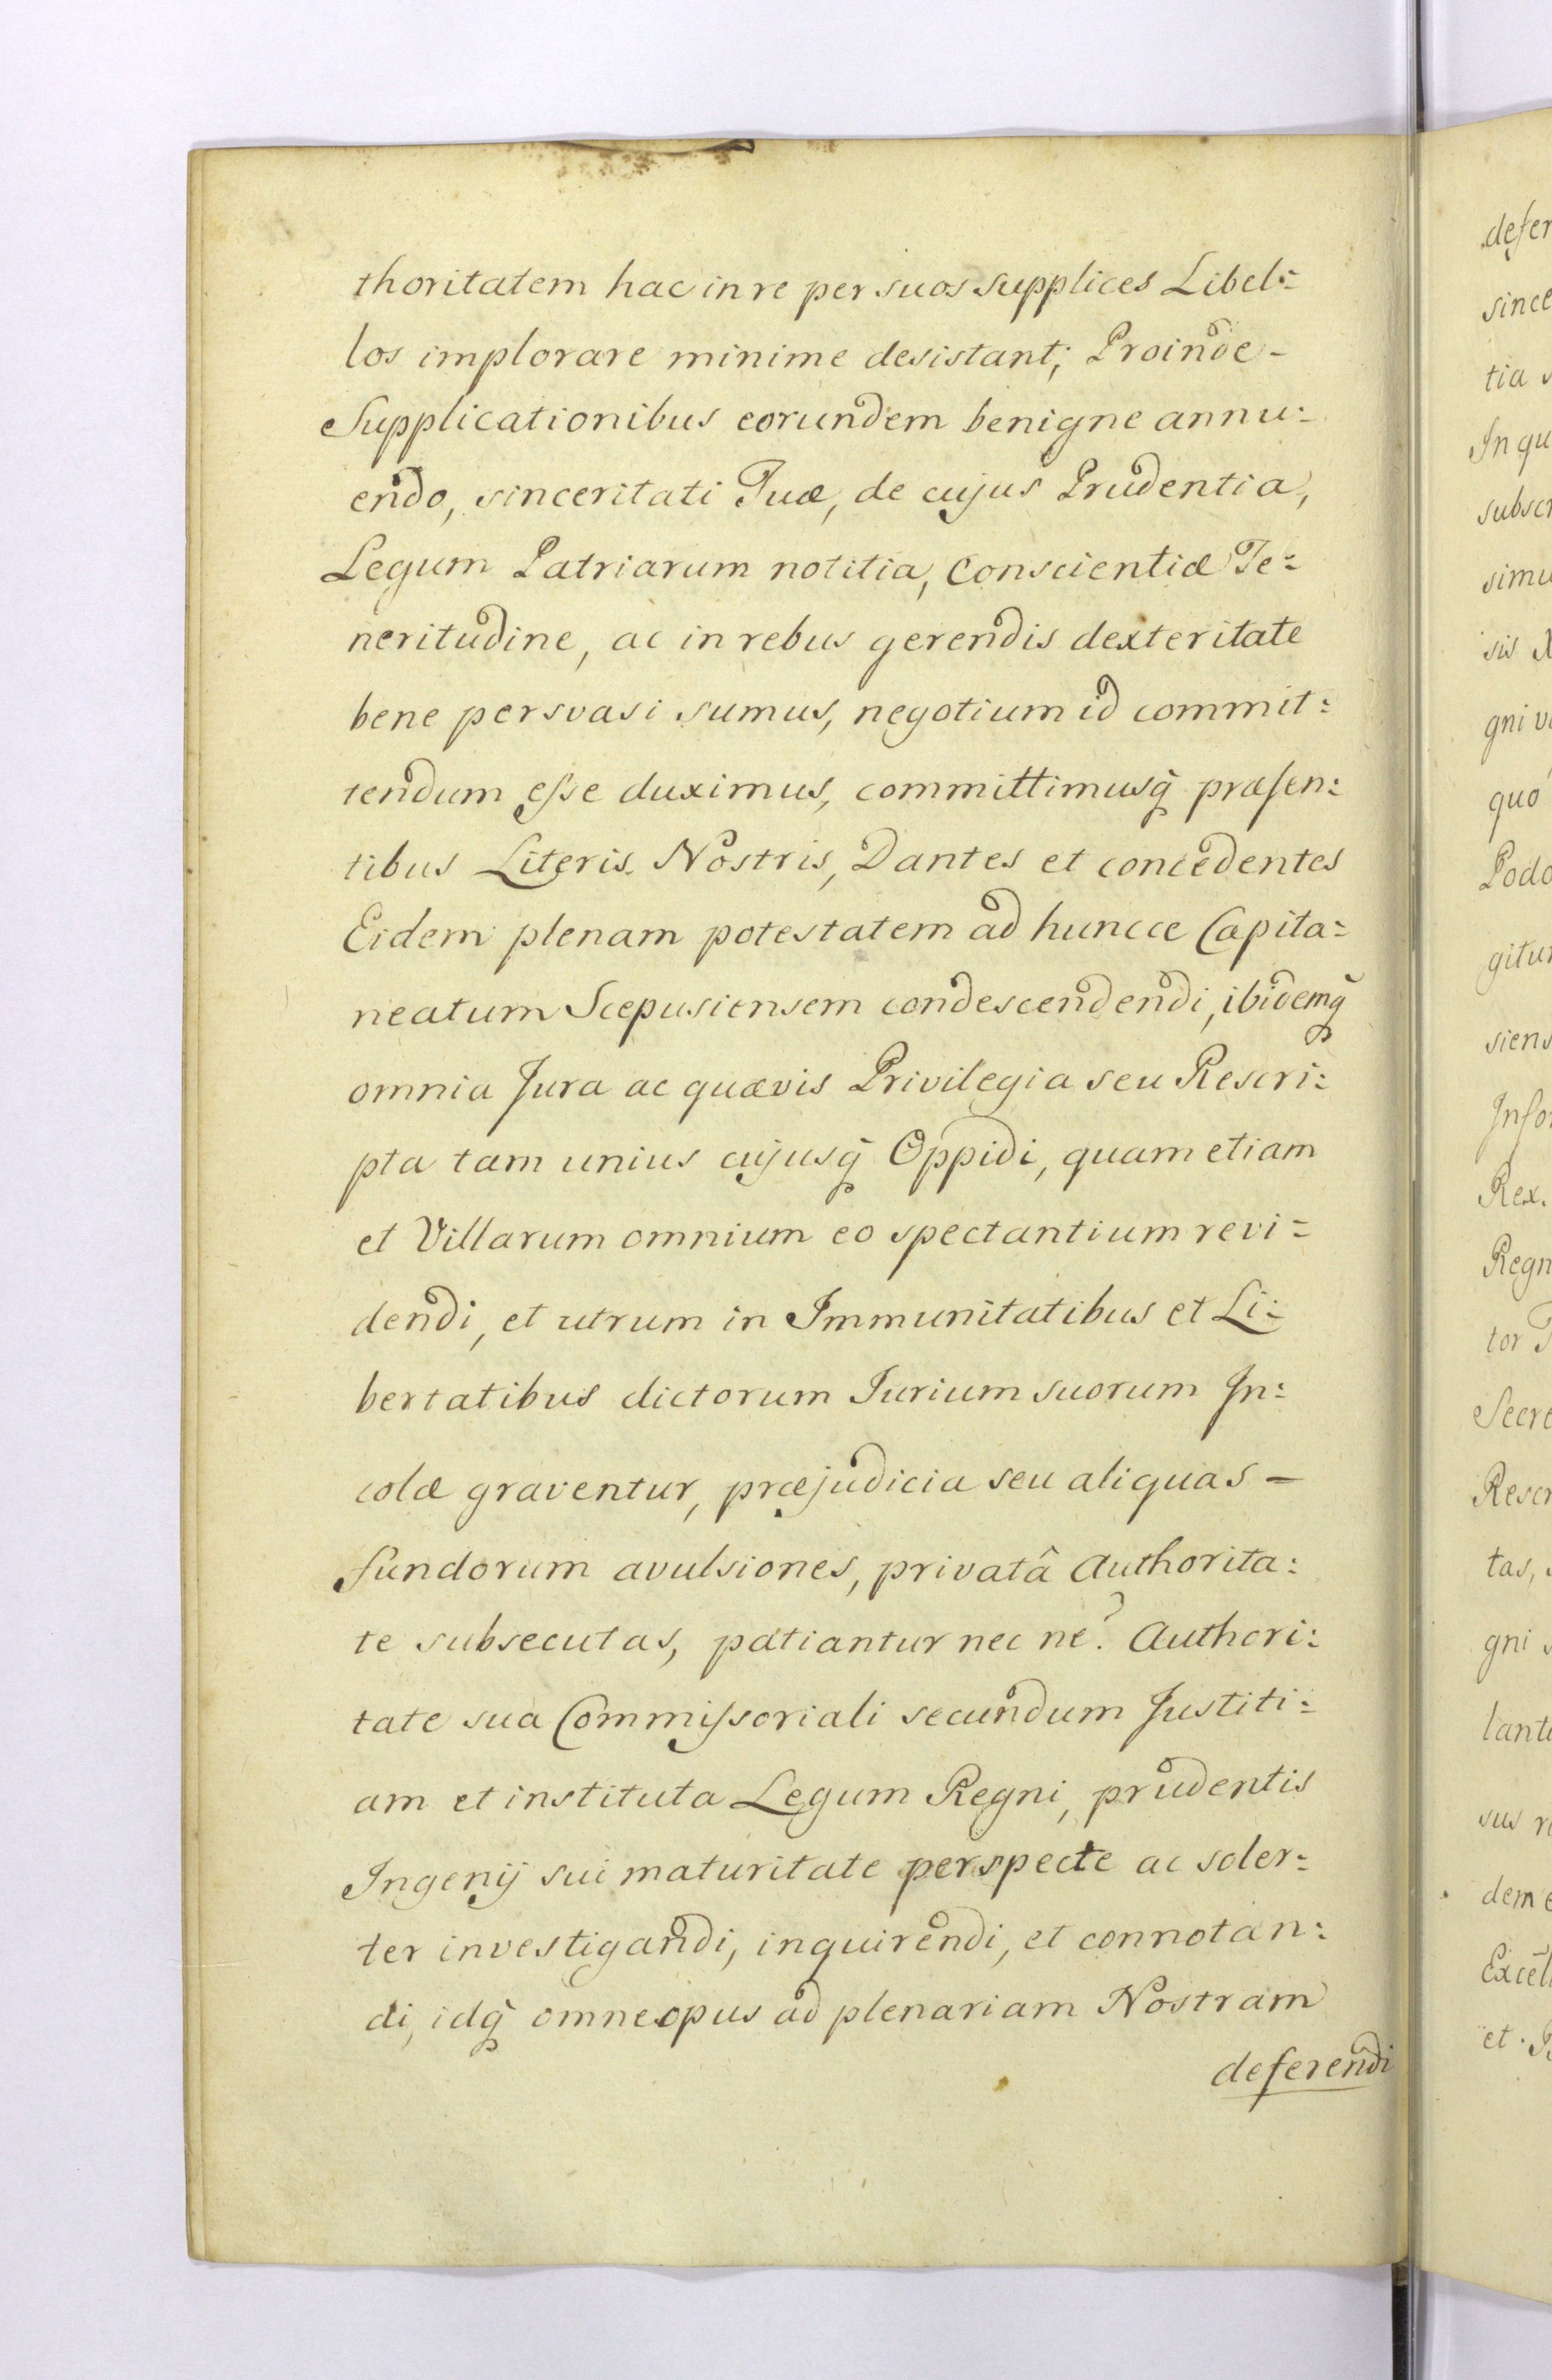 thoritatem hac in re per suos supplices Libel:
los implorare minime desistant; Proinde -
Supplicationibus eorundem benigne annu:
endo, sinceritati Tuæ, de cujus Prudentia,
Legum Patriarum notitia, Conscientiæ Te:
neritudine, ac in rebus gerendis dexteritate
bene persvasi sumus, negotium id commit:
tendum eſse duximus, committimusq̃ præsen:
tibus Literis Nostris, Dantes et concedentes
Eidem plenam potestatem ad huncce Capita:
neatum Scepusiensem condescendendi, ibidemq̃
omnia Jura ac quævis Privilegia seu Rescri:
pta tam unius cujusq̃ Oppidi, quam etiam
et Villarum omnium eo spectantium revi:
dendi, et utrum in Immunitatibus et Li:
bertatibus dictorum Iurium suorum In:
colæ graventur, præjudicia seu aliquas -
fundorum avulsiones, privatâ Authorita:
te subsecutas, patiantur nec ne? Authori:
tate sua Commiſsoriali secundum Justiti:
am et instituta Legum Regni, prudentis
Ingenij sui maturitate perspecte ac soler:
ter investigandi, inquirendi, et connotan:
di, idq̃ omne opus ad plenariam Nostram
deferendi
defer
since
tia
In qu
subscr
simu
sis
gni
quo
Podo
gitur
siens
Infor
Rex.
Regn
tor
Secre
Rescr
tas,
gni
lant
sus
dem
Excel
et